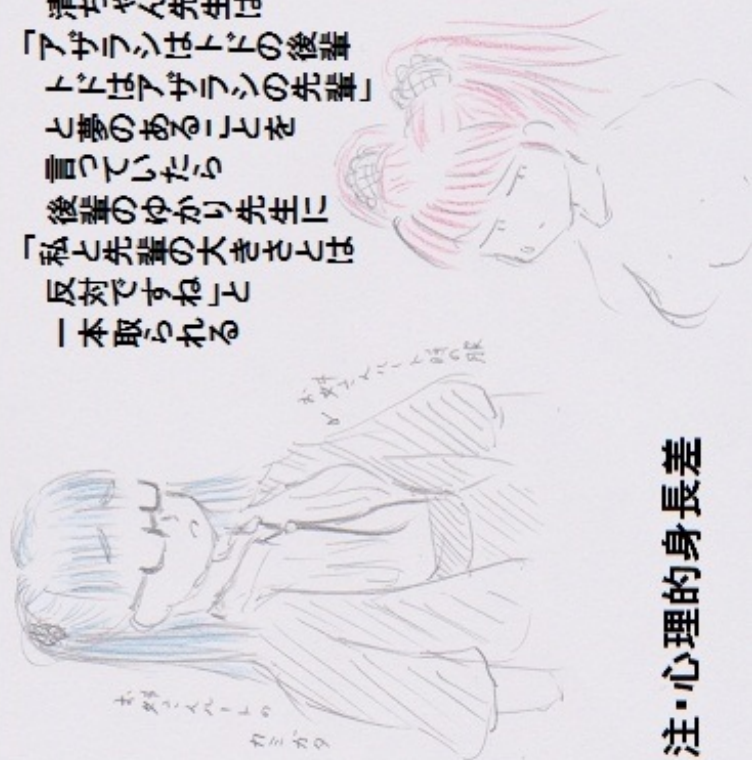 清ちゃん先生は
「アザラシはトドの後輩
トドはアザラシの先輩」
と夢のあることを
言っていたら
後輩のゆかり先生に
「私と先輩の大きさとは
反対ですね」と
一本取られる
時の服
カミガタ
注・心理的身長差